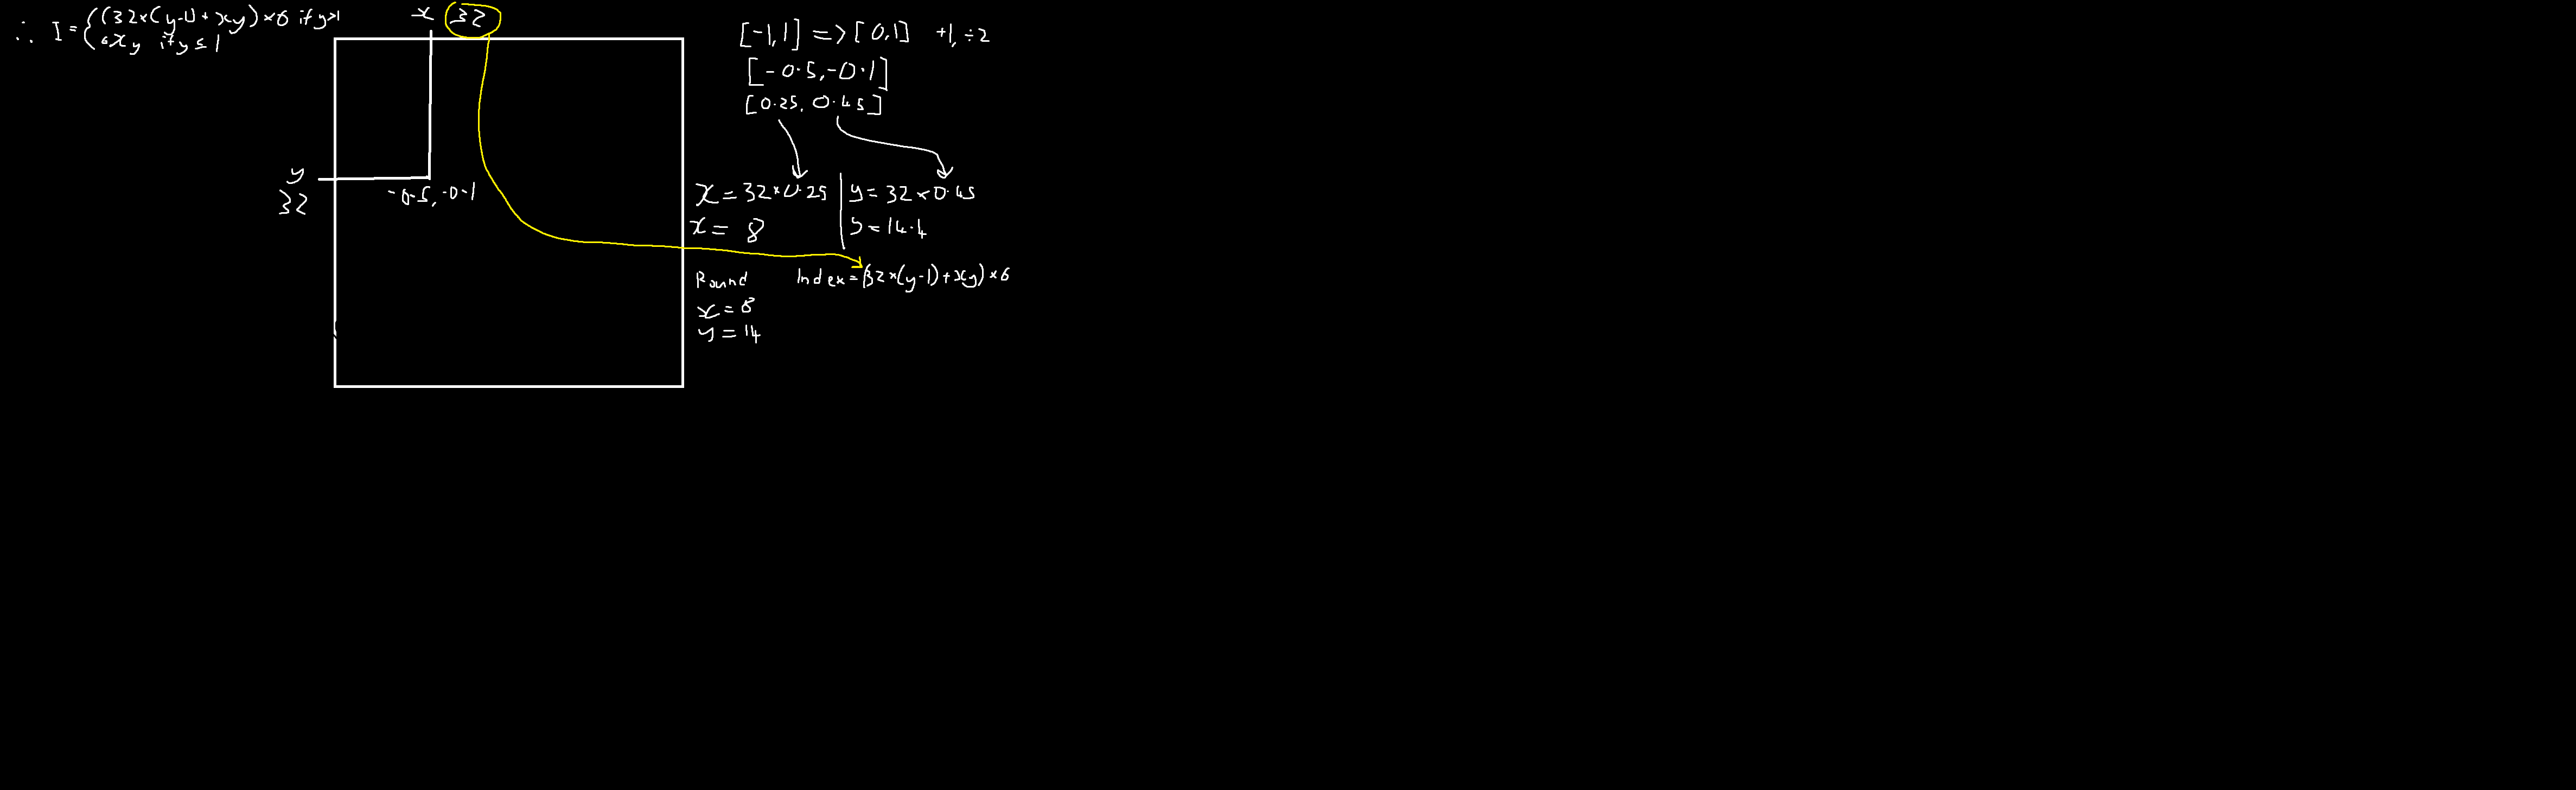 ∴ I = { (32×(y-1)+xy)×6 if y>1
6xy if y≤1
x 32
y
32
-0.5, -0.1
[-1,1] => [0,1] +1, ÷2
[-0.5, -0.1]
[0.25, 0.45]
x = 32×0.25 | y = 32×0.45
x = 8 | y = 14.4
Round
x = 8
y = 14
Index = (32×(y-1)+xy)×6